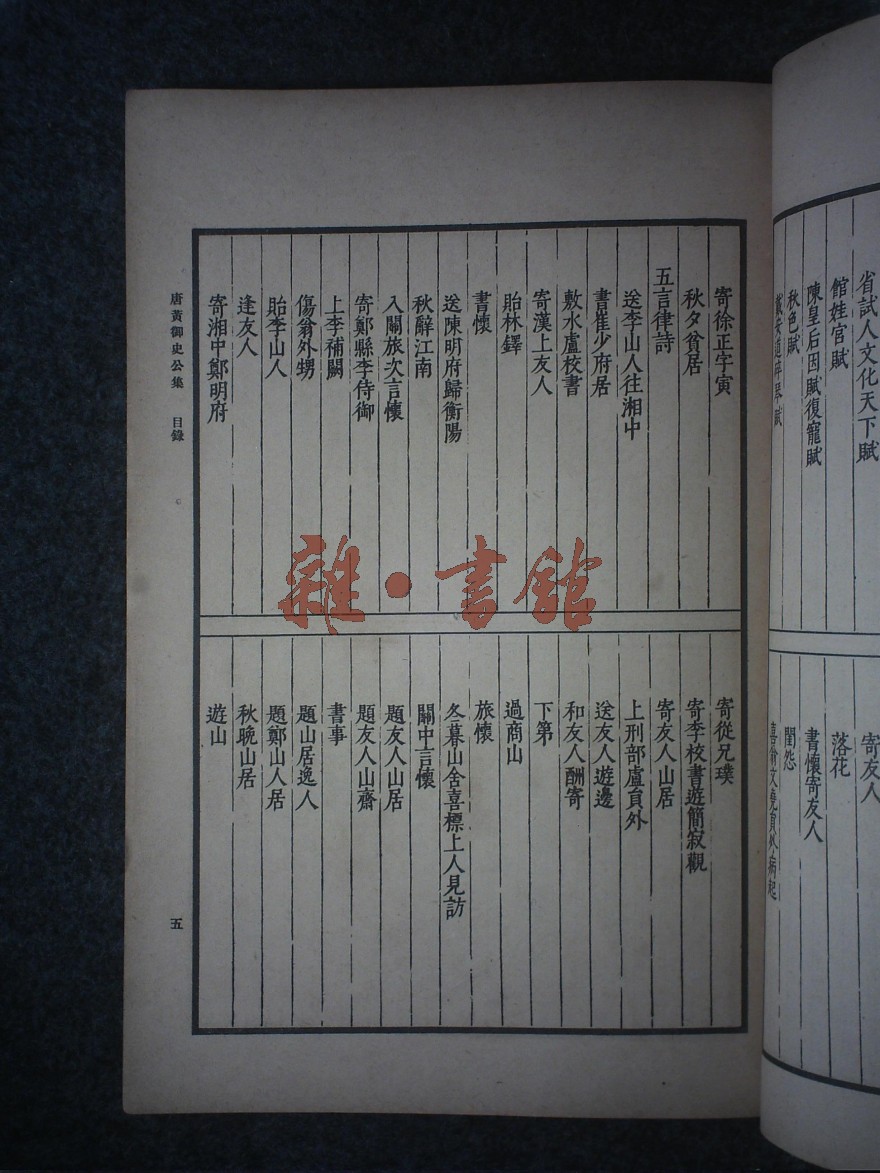 省試人文化天下賦
館娃宮賦
陳皇后因賦復寵賦
秋色賦
戴安道碎琴賦
寄友人
落花
書懷寄友人
閨怨
喜翁文堯員外病起
寄徐正字寅
秋夕貧居
五言律詩
送李山人往湘中
書崔少府居
敷水盧校書
寄漢上友人
貽林鐸
書懷
送陳明府歸衡陽
秋辭江南
入關旅次言懷
寄鄭縣李侍御
上李補闕
傷翁外甥
貽李山人
逢友人
寄湘中鄭明府
寄從兄璞
寄李校書遊簡寂觀
寄友人山居
上刑部盧員外
送友人遊邊
和友人酬寄
下第
過商山
旅懷
冬暮山舍喜標上人見訪
關中言懷
題友人山居
題友人山齋
書事
題山居逸人
題鄭山人居
秋晚山居
遊山
唐黃御史公集 目錄
五
雜·書館